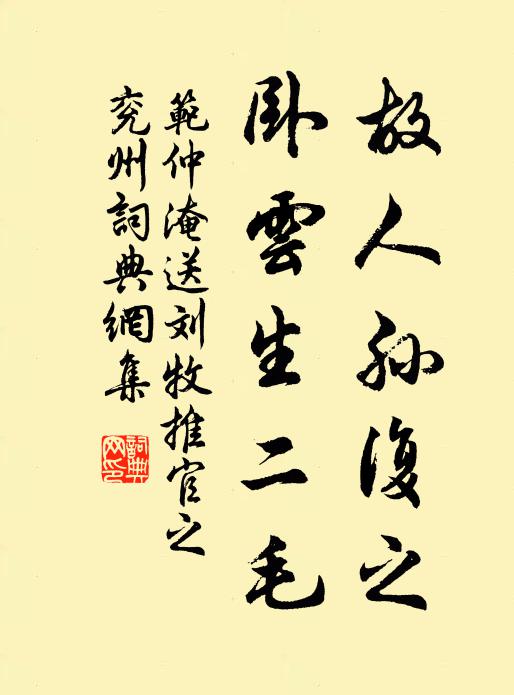 故人孙復之
臥雲生二毛
範仲淹送刘牧推官之
兖州詞典網集
詞典网印